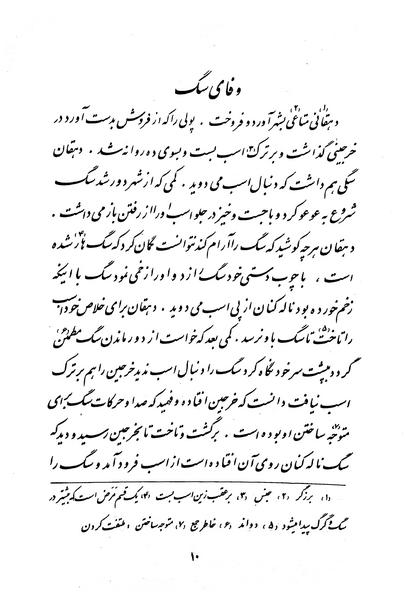 وفای سگ
دهقانی (۱) متاعی (۲) بشهر آورد و فروخت . پولی را که از فروش بدست آورد در
خرجینی گذاشت و بر ترک (۳) اسب بست و بسوی ده روانه شد . دهقان
سگی هم داشت که دنبال اسب می دوید . کمی که از شهر دور شد سگ
شروع به عوعو کرد و با جست و خیز در جلو اسب او را از رفتن باز می داشت .
دهقان هر چه کوشید که سگ را آرام کند نتوانست گمان کرد که سگ هار (۴) شده
است ، با چوب دستی خود سگ را زد و او را زخمی نمود سگ با اینکه
زخم خورده بود ناله کنان از پی اسب می دوید . دهقان برای خلاص خود اسب
را تاخت (۵) تا سگ باو نرسد . کمی بعد که خواست از دور ماندن سگ مطمئن (۶)
گردد به پشت سر خود نگاه کرد سگ را دنبال اسب ندید خرجین را هم بر ترک
اسب نیافت دانست که خرجین افتاده و فهمید که صدا و حرکات سگ برای
متوجه (۷) ساختن او بوده است . برگشت و تاخت تا بخرجین رسید و دید که
سگ ناله کنان روی آن افتاده است از اسب فرود آمد و سگ را
(۱) برزگر (۲) جنس (۳) بر عقب زین اسب بست (۴) یک قسم مرض است که بیشتر در
سگ و گرگ پیدا میشود (۵) دواند (۶) خاطر جمع (۷) متوجه ساختن : ملتفت کردن
۱۰